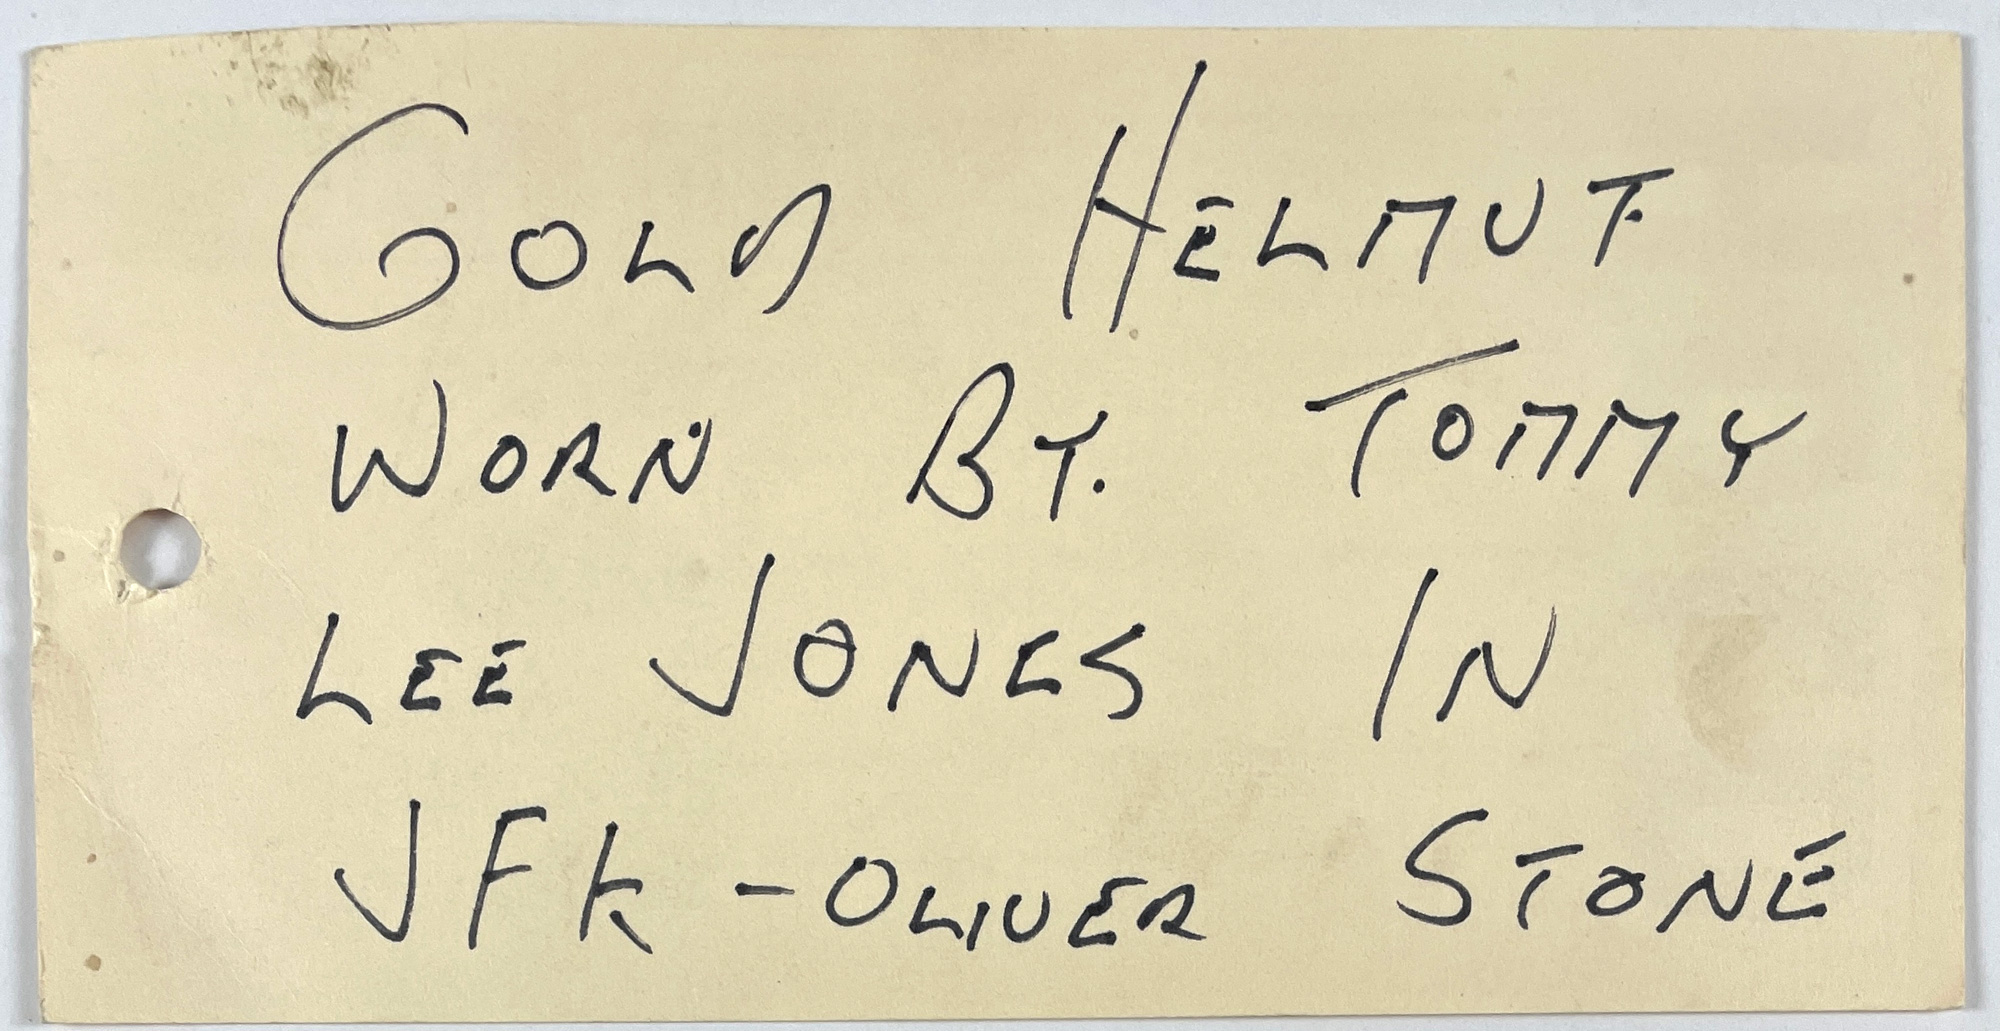 GOLD HELMUT
WORN BY. TOMMY
LEE JONES IN
JFK - OLIVER STONE